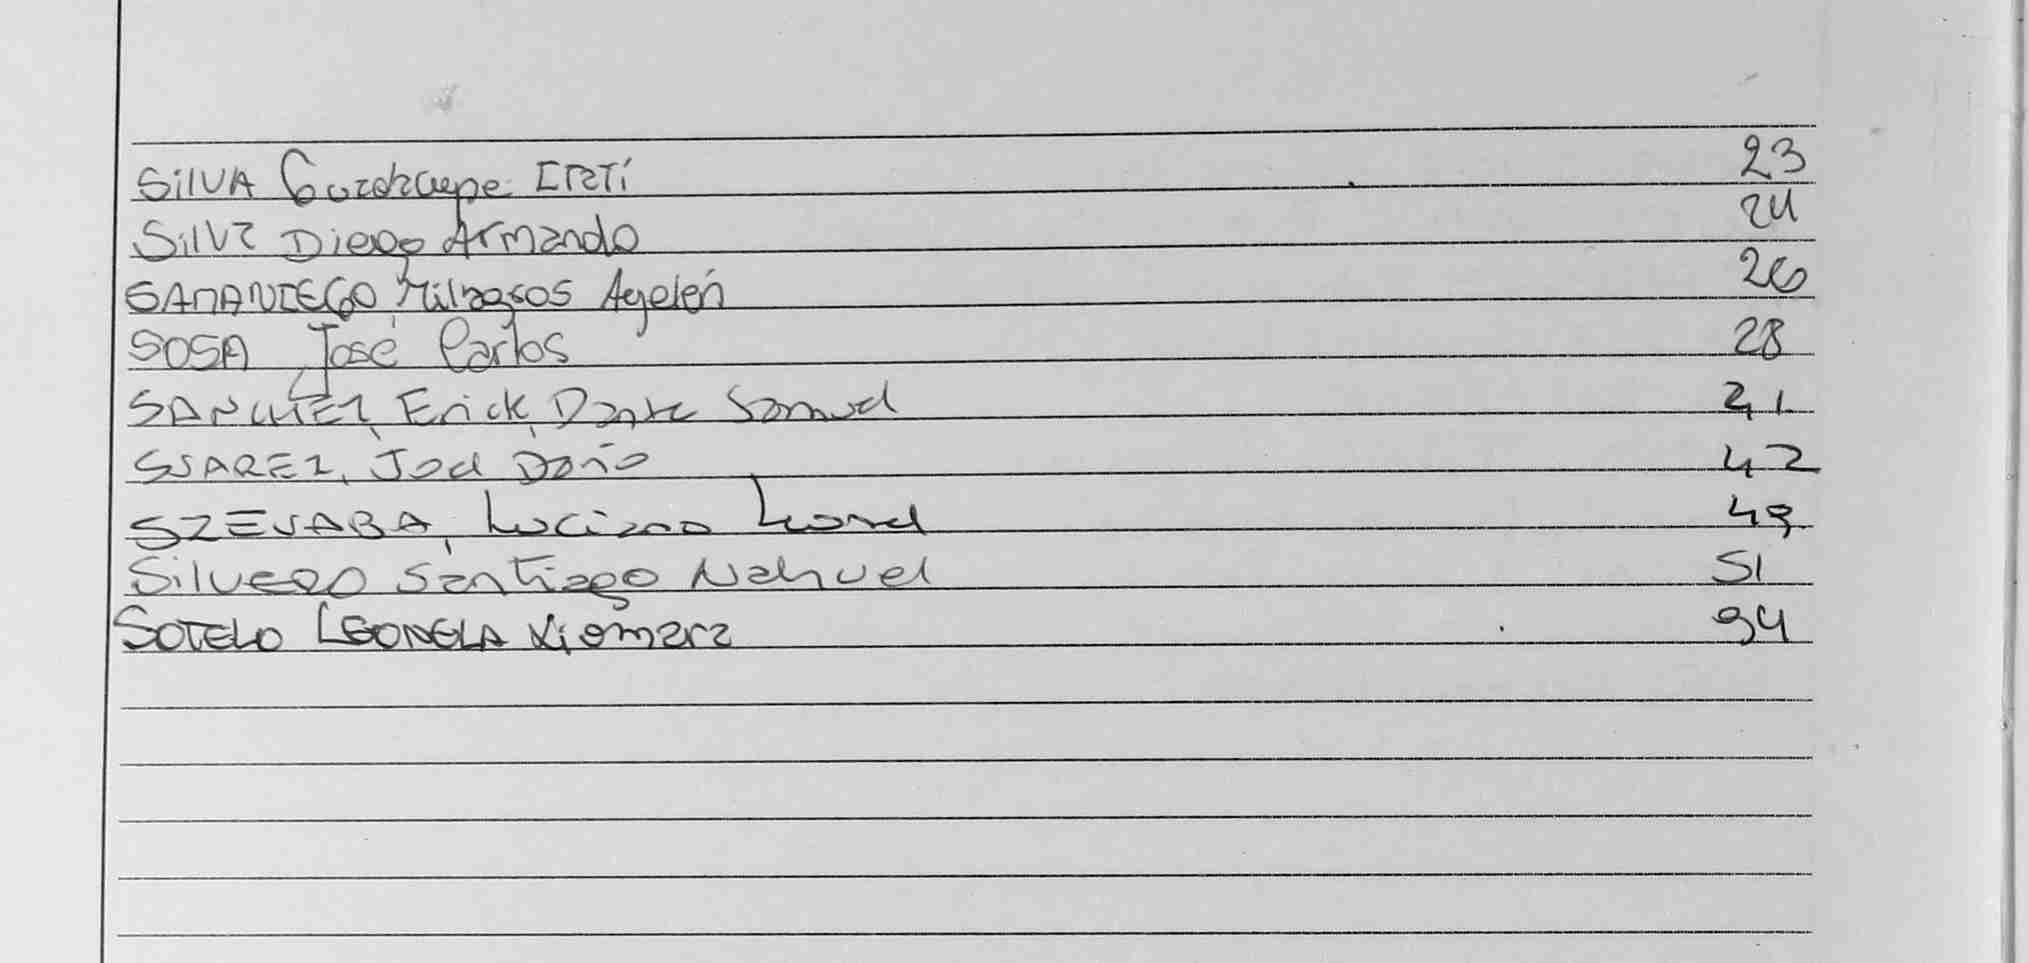 SilVA Guadalupe Itatí 23
Silva Diego Armando 24
SAMANIEGO Milagros Ayelén 26
SOSA José Carlos 28
SANCHEZ, Erick Dante Samuel 41
SUAREZ, Joel Darío 42
SZEVABA, Luciano Leonel 49
Silvero Santiago Nahuel 51
SOTELO LEONELA Xiomara 94